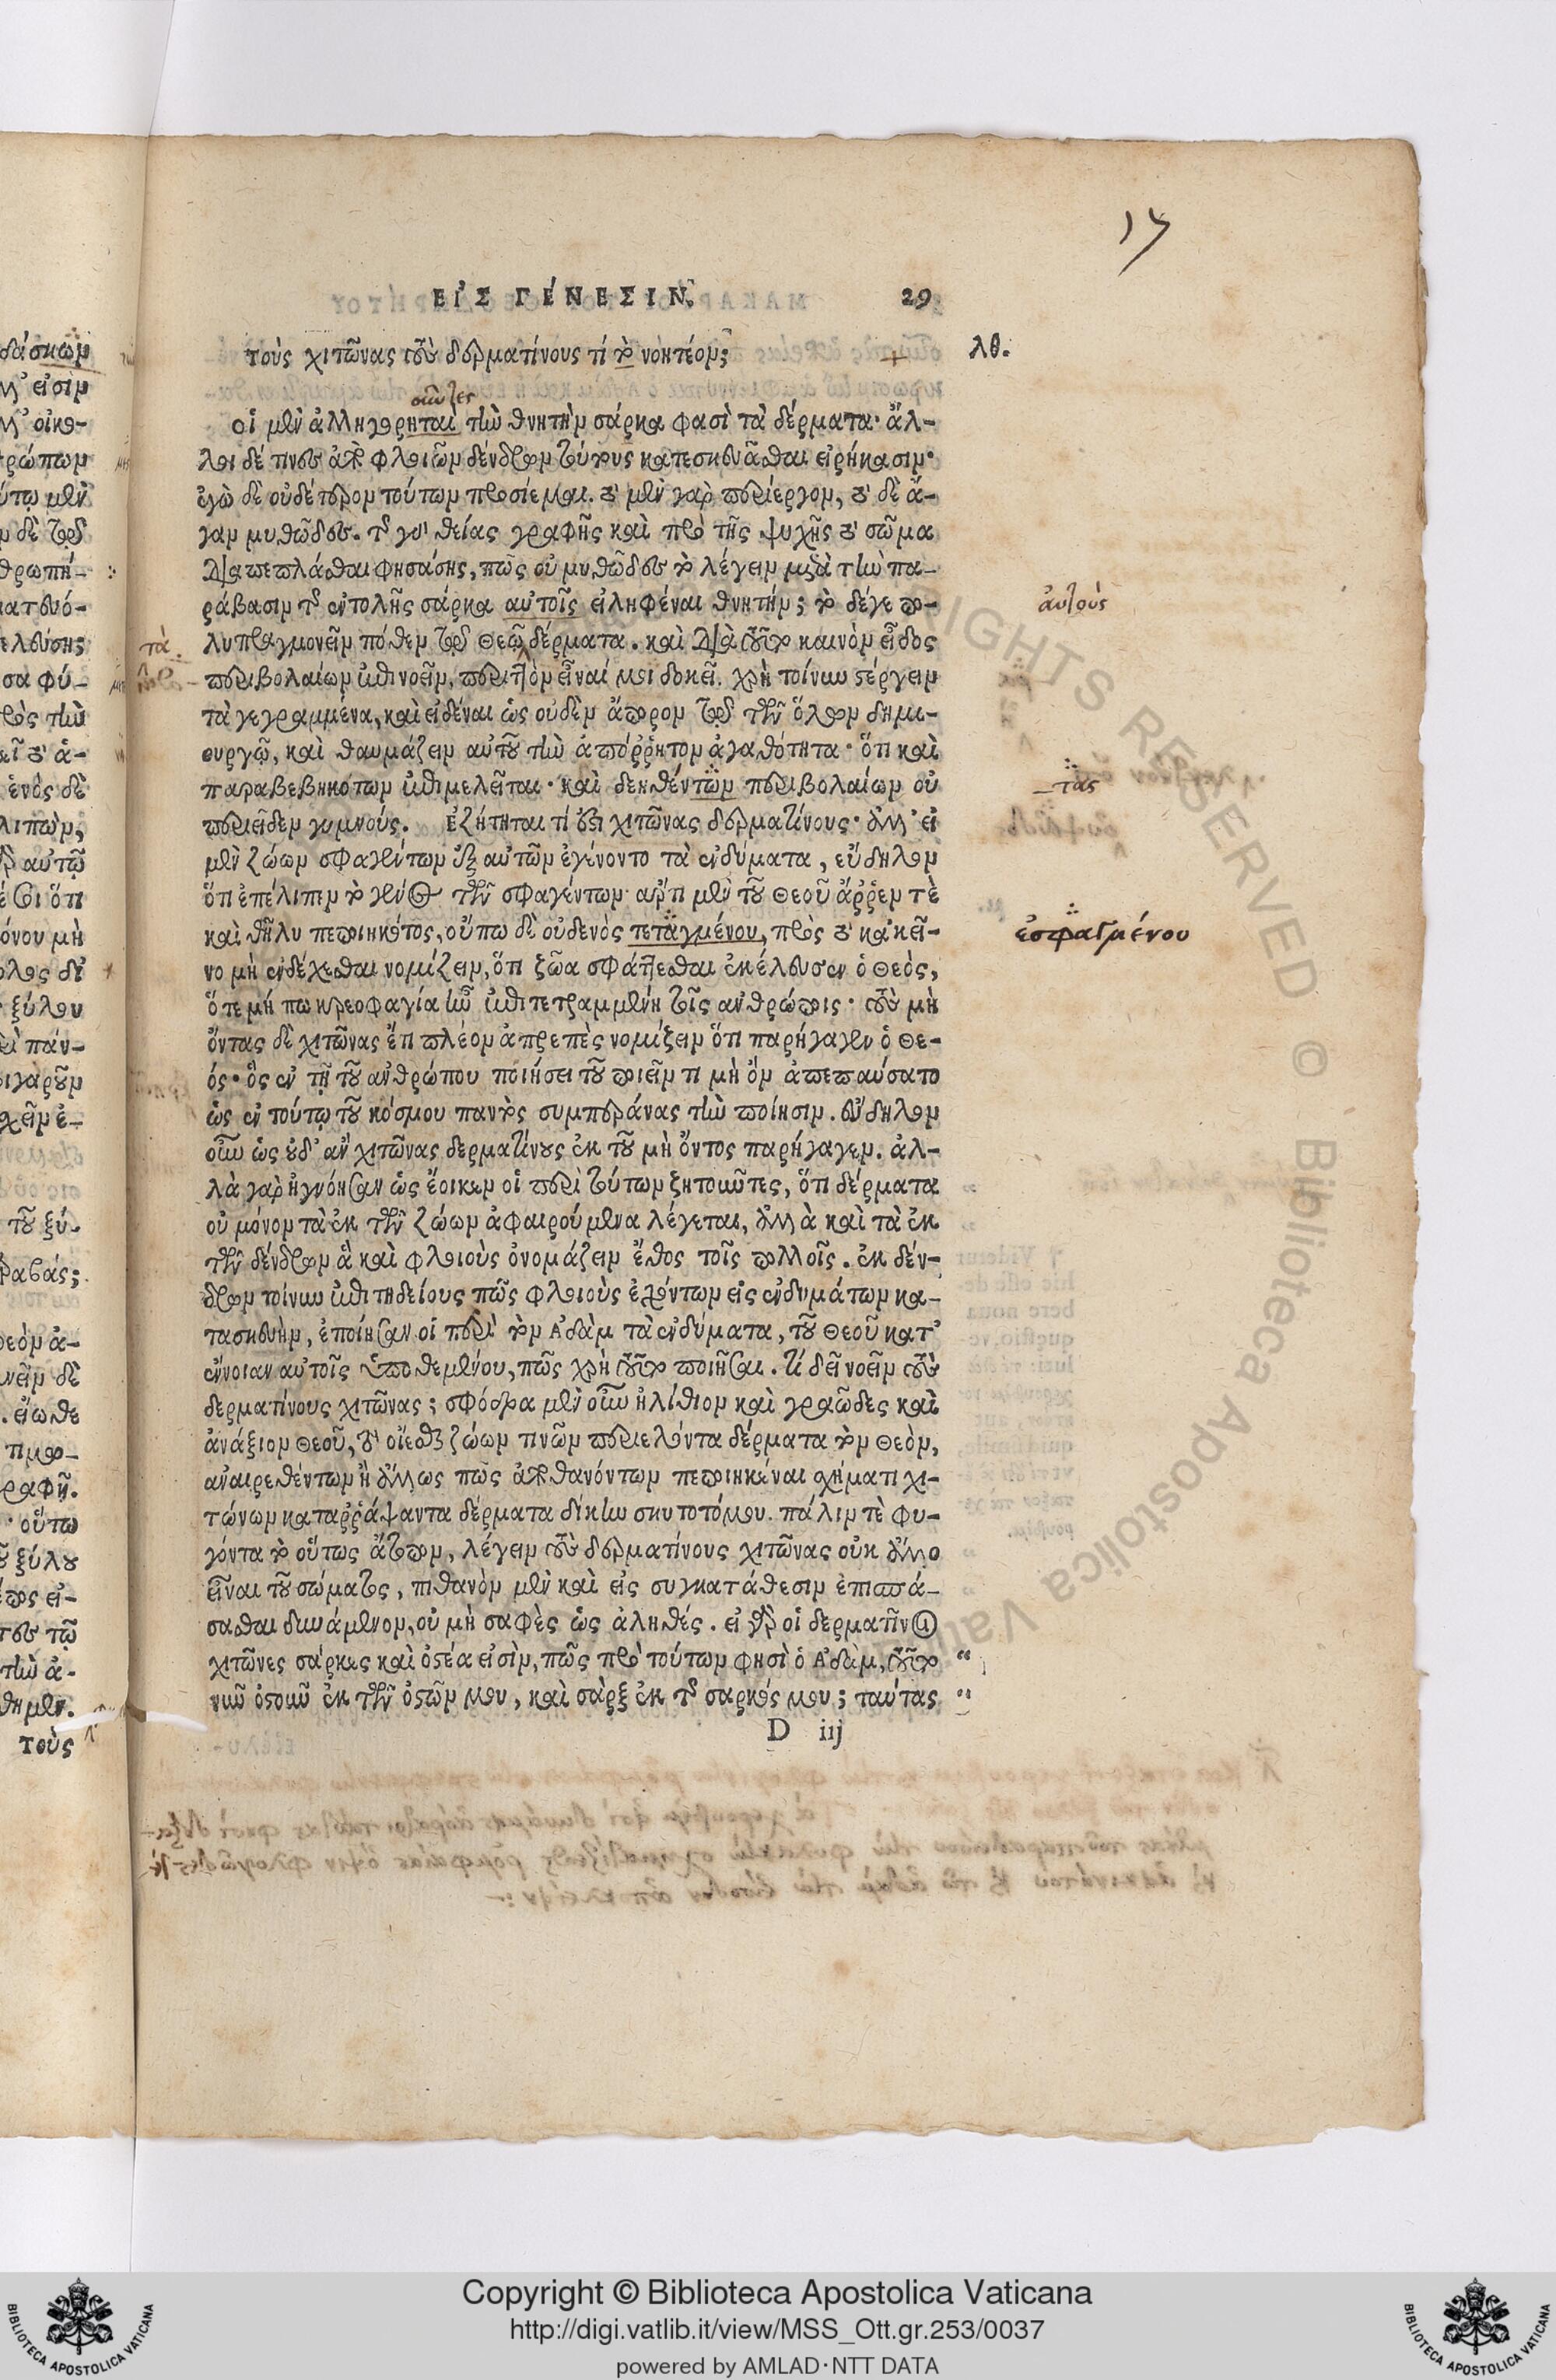 17
ΕἸΣ ΓΈΝΕΣΙΝ. 29
τοὺς χιτῶνας τοὺς δερματίνους τί χρὴ νοητέον; + λθ.
οὖντες
οἱ μὲν ἀλληγορηταὶ τὴν θνητὴν σάρκα φασὶ τὰ δέρματα· ἄλ-
λοι δέ τινες ἀπὸ φλοιῶν δένδρων τούτους κατεσκευᾶσθαι εἰρήκασιν·
ἐγὼ δὲ οὐδέτερον τούτων προσίεμαι. τὸ μὲν γὰρ περίεργον, τὸ δὲ ἄ-
γαν μυθῶδες. τῆς γὰρ θείας γραφῆς καὶ πρὸ τῆς ψυχῆς τὸ σῶμα
διαπεπλάσθαι φησάσης, πῶς οὐ μυθῶδες τὸ λέγειν μετὰ τὴν πα-
ράβασιν τῆς ἐντολῆς σάρκα αὐτοῖς εἰληφέναι θνητήν; τὸ δέγε πο- αὐτοὺς
λυπραγμονεῖν πόθεν τῷ Θεῷ δέρματα. καὶ διὰ τοῦτο καινὸν εἶδος τὰ
περιβολαίων ἐπινοεῖν, περιττὸν εἶναί μοι δοκεῖ. χρὴ τοίνυν στέργειν
τὰ γεγραμμένα, καὶ εἰδέναι ὡς οὐδὲν ἄπορον τῷ τῶν ὅλων δημι-
ουργῷ, καὶ θαυμάζειν αὐτοῦ τὴν ἀπόῤῥητον ἀγαθότητα· ὅτι καὶ
παραβεβηκότων ἐπιμελεῖται· καὶ δεηθέντων περιβολαίων οὐ _τας
περιεῖδεν γυμνούς. Ἐζήτηται τί ἐστι χιτῶνας δερματίνους· ἀλλ' εἰ
μὲν ζώων σφαγέντων ἐξ αὐτῶν ἐγένοντο τὰ ἐνδύματα, εὔδηλον
ὅτι ἐπέλιπεν τὸ γένος τῶν σφαγέντων· ἄρτι μὲν τοῦ Θεοῦ ἄῤῥεν τὲ
καὶ θῆλυ πεποιηκότος, οὔπω δὲ οὐδενὸς πεταγμένου, πρὸς τὸ κἀκεῖ- ἐσφαγμένου
νο μὴ ἐνδέχεσθαι νομίζειν, ὅτι ζῶα σφάττεσθαι ἐκέλευσεν ὁ Θεὸς,
ὅτε μή πω κρεοφαγία ἦν ἐπιτετραμμένη τοῖς ἀνθρώποις· τοὺς μὴ
ὄντας δὲ χιτῶνας ἔτι πλέον ἀπρεπὲς νομίζειν ὅτι παρήγαγεν ὁ Θε-
ός· ὃς ἐν τῇ τοῦ ἀνθρώπου ποιήσει τοῦ ποιεῖν τι μὴ ὂν ἀπεπαύσατο
ὡς ἐν τούτῳ τοῦ κόσμου παντὸς συμπεράνας τὴν ποίησιν. εὔδηλον
οὖν ὡς οὐδ' ἂν χιτῶνας δερματίνους ἐκ τοῦ μὴ ὄντος παρήγαγεν. ἀλ-
λὰ γὰρ ἠγνόησαν ὡς ἔοικεν οἱ περὶ τούτων ζητοῦντες, ὅτι δέρματα
οὐ μόνον τὰ ἐκ τῶν ζώων ἀφαιρούμενα λέγεται, ἀλλὰ καὶ τὰ ἐκ
τῶν δένδρων ἃ καὶ φλοιοὺς ὀνομάζειν ἔθος τοῖς πολλοῖς. ἐκ δέν-
δρων τοίνυν ἐπιτηδείους πῶς φλοιοὺς ἐχόντων εἰς ἐνδυμάτων κα-
τασκευὴν, ἐποίησαν οἱ περὶ τὸν Ἀδὰμ τὰ ἐνδύματα, τοῦ Θεοῦ κατ'
ἔννοιαν αὐτοῖς ὑποθεμένου, πῶς χρὴ τοῦτο ποιῆσαι. τί δεῖ νοεῖν τοὺς
δερματίνους χιτῶνας; σφόδρα μὲν οὖν ἠλίθιον καὶ γραῶδες καὶ
ἀνάξιον Θεοῦ, τὸ οἴεσθαι ζώων τινῶν περιελόντα δέρματα τὸν Θεὸν,
ἀναιρεθέντων ἢ ἄλλως πῶς ἀποθανόντων πεποιηκέναι σχήματι χι-
τώνων καταῤῥάψαντα δέρματα δίκην σκυτοτόμου. πάλιν τὲ φυ-
γόντα τὸ οὕτως ἄτοπον, λέγειν τοὺς δερματίνους χιτῶνας οὐκ ἄλλο
εἶναι τοῦ σώματος, πιθανὸν μὲν καὶ εἰς συγκατάθεσιν ἐπισπά-
σασθαι δυνάμενον, οὐ μὴ σαφὲς ὡς ἀληθές. εἰ γὰρ οἱ δερμάτινοι
χιτῶνες σάρκες καὶ ὀστέα εἰσὶν, πῶς πρὸ τούτων φησὶ ὁ Ἀδὰμ, τοῦτο "
νῦν ὀστοῦν ἐκ τῶν ὀστῶν μου, καὶ σὰρξ ἐκ τῆς σαρκός μου; ταύτας "
D iij
RIGHTS RESERVED © Biblioteca Apostolica Vaticana
Copyright © Biblioteca Apostolica Vaticana
http://digi.vatlib.it/view/MSS_Ott.gr.253/0037
powered by AMLAD·NTT DATA
BIBLIOTECA APOSTOLICA VATICANA
BIBLIOTECA APOSTOLICA VATICANA